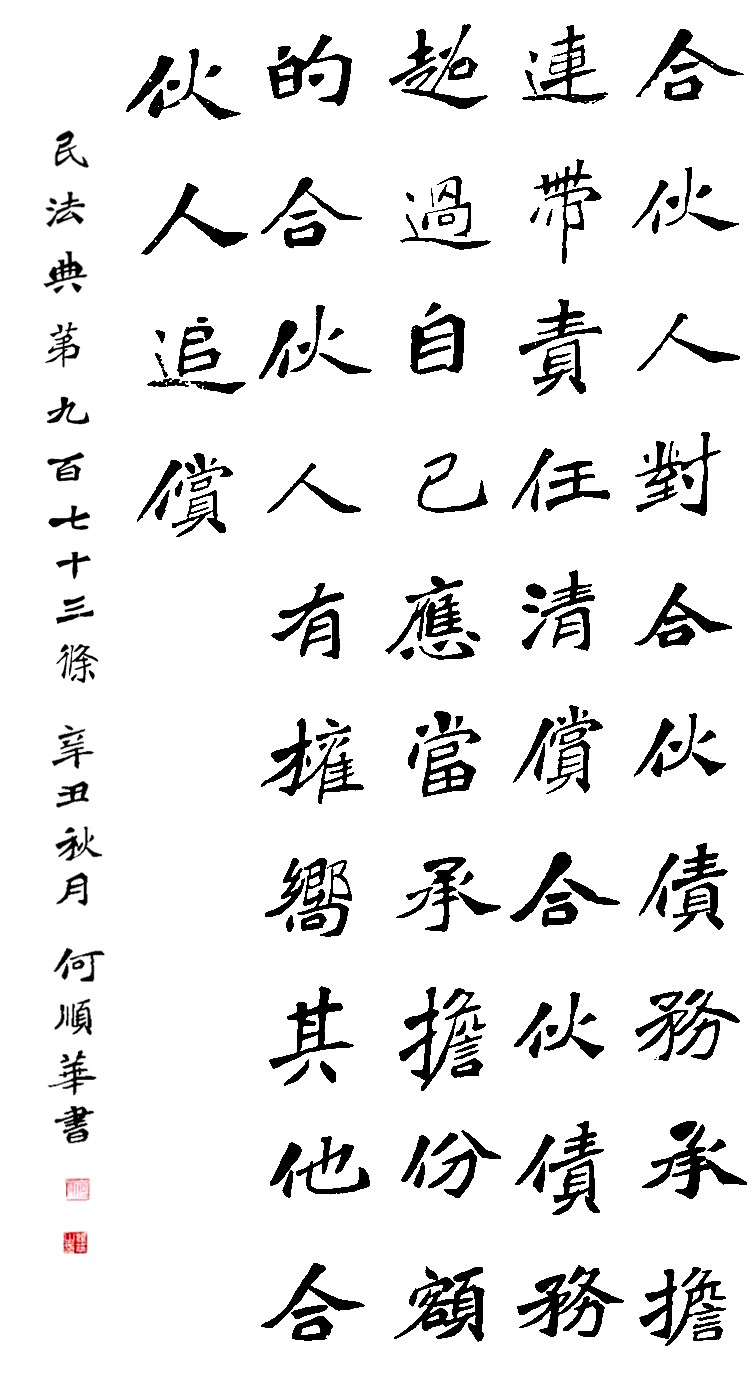 合伙人對合伙債務承擔
連帶責任清償合伙債務
超過自己應當承擔份額
的合伙人有權嚮其他合
伙人追償
民法典第九百七十三條 辛丑秋月 何順華書